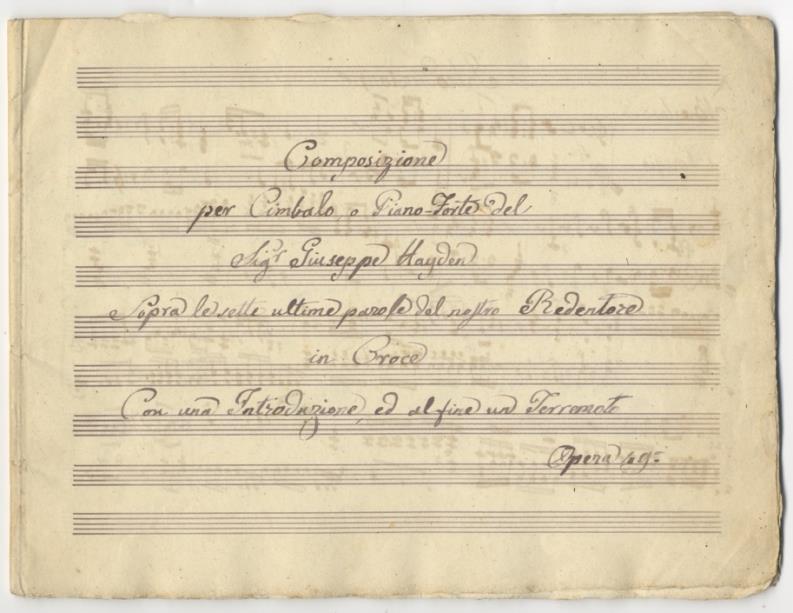 Composizione
per Cimbalo, o Piano-Forte del
Sigr Giuseppe Hayden
Sopra le sette ultime parole del nostro Redentore
in Croce
Con una Introduzione, ed al fine un Terremoto
Opera 49